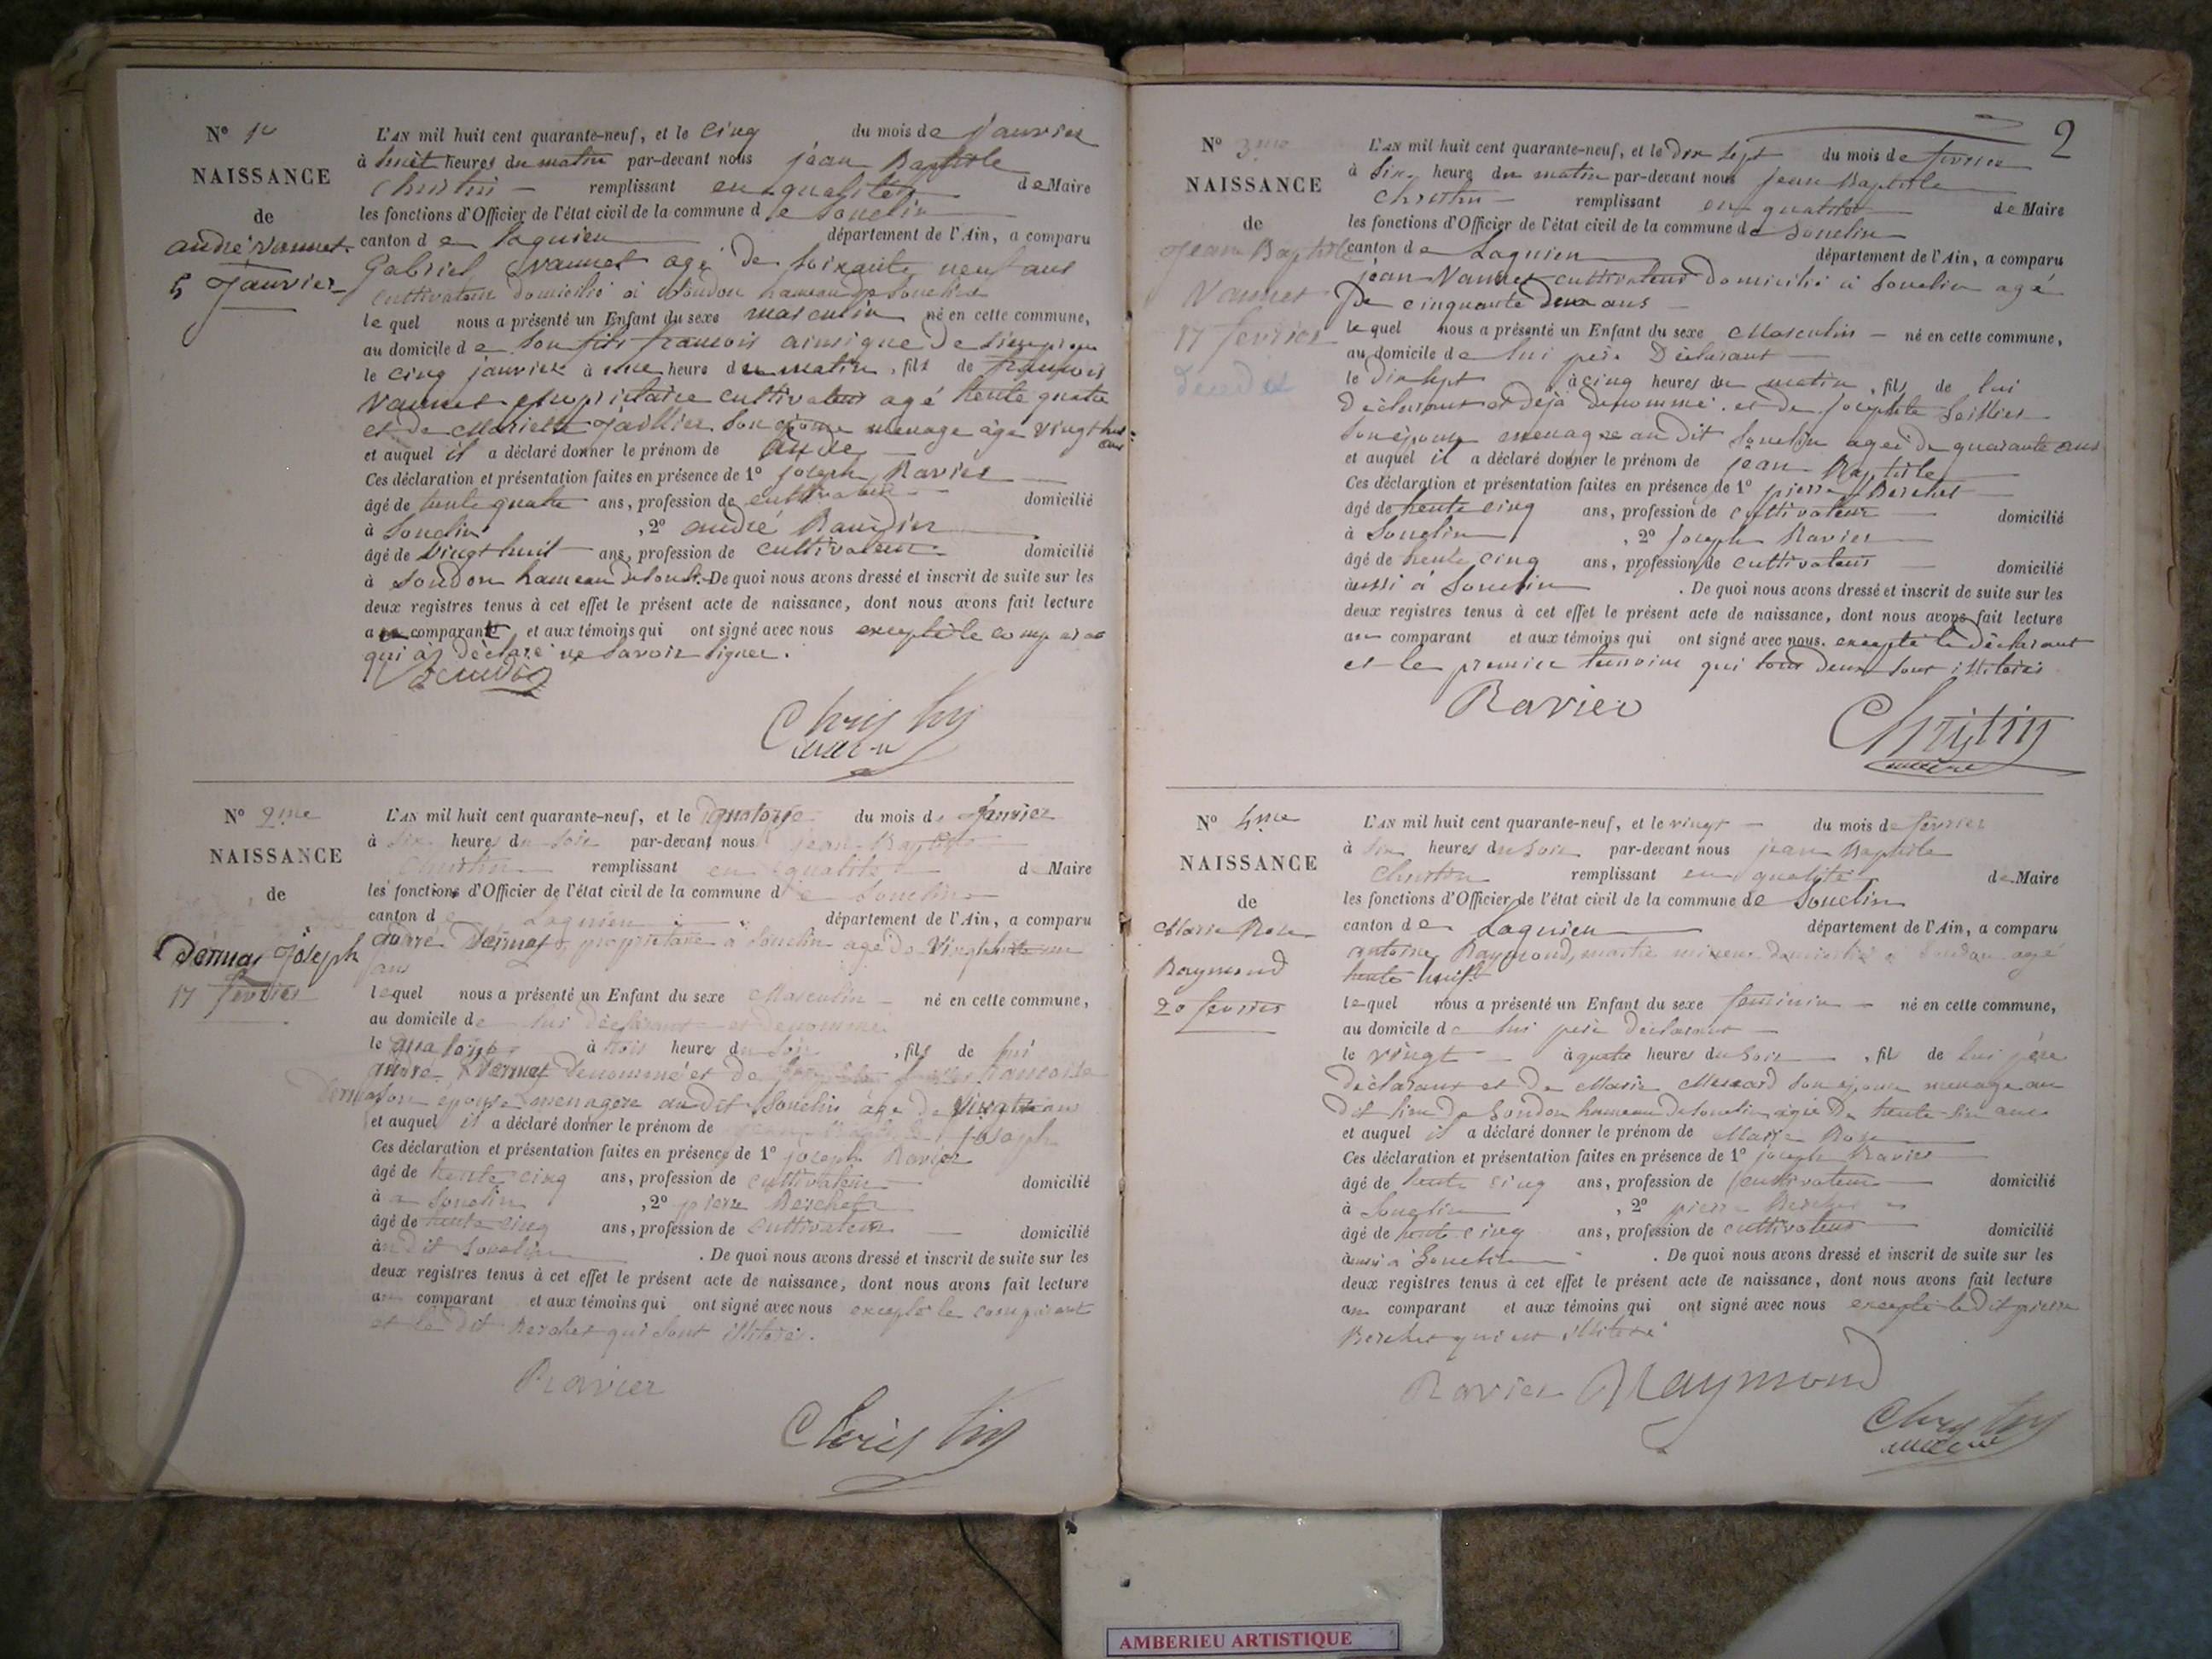 N° 1er
NAISSANCE
de
andré vannet
5 Janvier
L'AN mil huit cent quarante-neuf, et le cinq du mois de janvier
à huit heures du matin par-devant nous jean Baptiste
Christin remplissant en qualité de Maire
les fonctions d'Officier de l'état civil de la commune de Souclin
canton de lagnieu département de l'Ain, a comparu
Gabriel vannet agé de soixante neuf ans
cultivateur domicilié à Soudon hameau de Souclin
lequel nous a présenté un Enfant du sexe masculin né en cette commune,
au domicile de son fils francois ainsi que
le cinq janvier à une heure du matin, fils de françois
Vannet propriétaire cultivateur agé trente quatre
et de Mariette Jaillier son épouse menage agé vingt huit ans
et auquel il a déclaré donner le prénom de andré
Ces déclaration et présentation faites en présence de 1° joseph Ravier
âgé de trente quatre ans, profession de cultivateur domicilié
à Souclin, 2° andré Baudin
âgé de vingt huit ans, profession de cultivateur domicilié
à Soudon hameau de soucl. De quoi nous avons dressé et inscrit de suite sur les
deux registres tenus à cet effet le présent acte de naissance, dont nous avons fait lecture
au comparant et aux témoins qui ont signé avec nous excepté le
qui a déclaré ne savoir signer.
Christin
maire
N° 2me
NAISSANCE
de
Dermas Joseph
17 fevrier
L'AN mil huit cent quarante-neuf, et le quatorze du mois de Janvier
à six heures du soir par-devant nous jean Baptiste
Christin remplissant en qualité de Maire
les fonctions d'Officier de l'état civil de la commune de Souclin
canton de Lagnieu département de l'Ain, a comparu
propriétaire à Souclin agé de
ans
lequel nous a présenté un Enfant du sexe Masculin né en cette commune,
au domicile de lui déclarant et denommé
le quatorze à trois heures du soir, fils de lui
denommé et de francoise
son epouse menagere au dit Souclin âgé de
et auquel il a déclaré donner le prénom de joseph
Ces déclaration et présentation faites en présence de 1° joseph Ravier
âgé de trente cinq ans, profession de cultivateur domicilié
à Souclin, 2° pierre Berchet
âgé de trente cinq ans, profession de cultivateur domicilié
au dit Souclin. De quoi nous avons dressé et inscrit de suite sur les
deux registres tenus à cet effet le présent acte de naissance, dont nous avons fait lecture
au comparant et aux témoins qui ont signé avec nous excepté le comparant
et le dit Berchet qui sont illitéré.
Ravier
Christin
2
N° 3me
NAISSANCE
de
Jean Baptiste
Vannet
17 fevrier
L'AN mil huit cent quarante-neuf, et le dix sept du mois de fevrier
à six heure du matin par-devant nous Jean Baptiste
Christin remplissant en qualité de Maire
les fonctions d'Officier de l'état civil de la commune de Souclin
canton de Lagnieu département de l'Ain, a comparu
jean Vannet cultivateur domicilié à Souclin agé
de cinquante deux ans
lequel nous a présenté un Enfant du sexe Masculin né en cette commune,
au domicile de lui père Déclarant
le dix sept à cinq heures du matin, fils de lui
Déclarant et déjà denommé et de josephte
son épouse menagre au dit Souclin ageé de quarante ans
et auquel il a déclaré donner le prénom de jean Baptiste
Ces déclaration et présentation faites en présence de 1° pierre Berchet
âgé de trente cinq ans, profession de cultivateur domicilié
à Souclin, 2° joseph Ravier
âgé de trente cinq ans, profession de cultivateur domicilié
aussi à Souclin. De quoi nous avons dressé et inscrit de suite sur les
deux registres tenus à cet effet le présent acte de naissance, dont nous avons fait lecture
au comparant et aux témoins qui ont signé avec nous. excepté le déclarant
et le premier temoins qui tous deux sont illitérés
Ravier
Christin
maire
N° 4me
NAISSANCE
de
Marie Rose
Raymond
20 fevrier
L'AN mil huit cent quarante-neuf, et le vingt du mois de février
à six heures du soir par-devant nous jean Baptiste
Christin remplissant en qualité de Maire
les fonctions d'Officier de l'état civil de la commune de Souclin
canton de Lagnieu département de l'Ain, a comparu
antoine Raymond, maitre mineur domicilié à Soudon agé
trente huit
lequel nous a présenté un Enfant du sexe feminin né en cette commune,
au domicile de lui père declarant
le vingt à quatre heures du soir, fil de lui père
Déclarant et de Marie son épouse menage au
dit lieu de Soudon hameau de Souclin agée de trente six ans
et auquel il a déclaré donner le prénom de Marie Rose
Ces déclaration et présentation faites en présence de 1° joseph Ravier
âgé de trente cinq ans, profession de cultivateur domicilié
à Souclin, 2° pierre Berchet
âgé de trente cinq ans, profession de cultivateur domicilié
aussi à Souclin. De quoi nous avons dressé et inscrit de suite sur les
deux registres tenus à cet effet le présent acte de naissance, dont nous avons fait lecture
au comparant et aux témoins qui ont signé avec nous excepté le dit pierre
Berchet qui est illiteré
Ravier Raymond
Christin
maire
AMBERIEU ARTISTIQUE